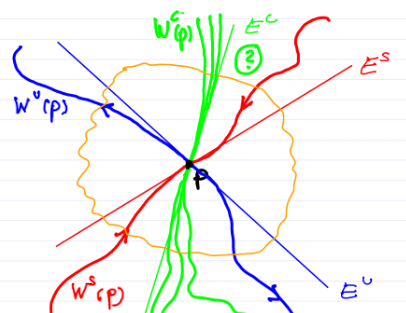 W^c(p)
E^c
?
E^s
W^u(p)
p
W^s(p)
E^u